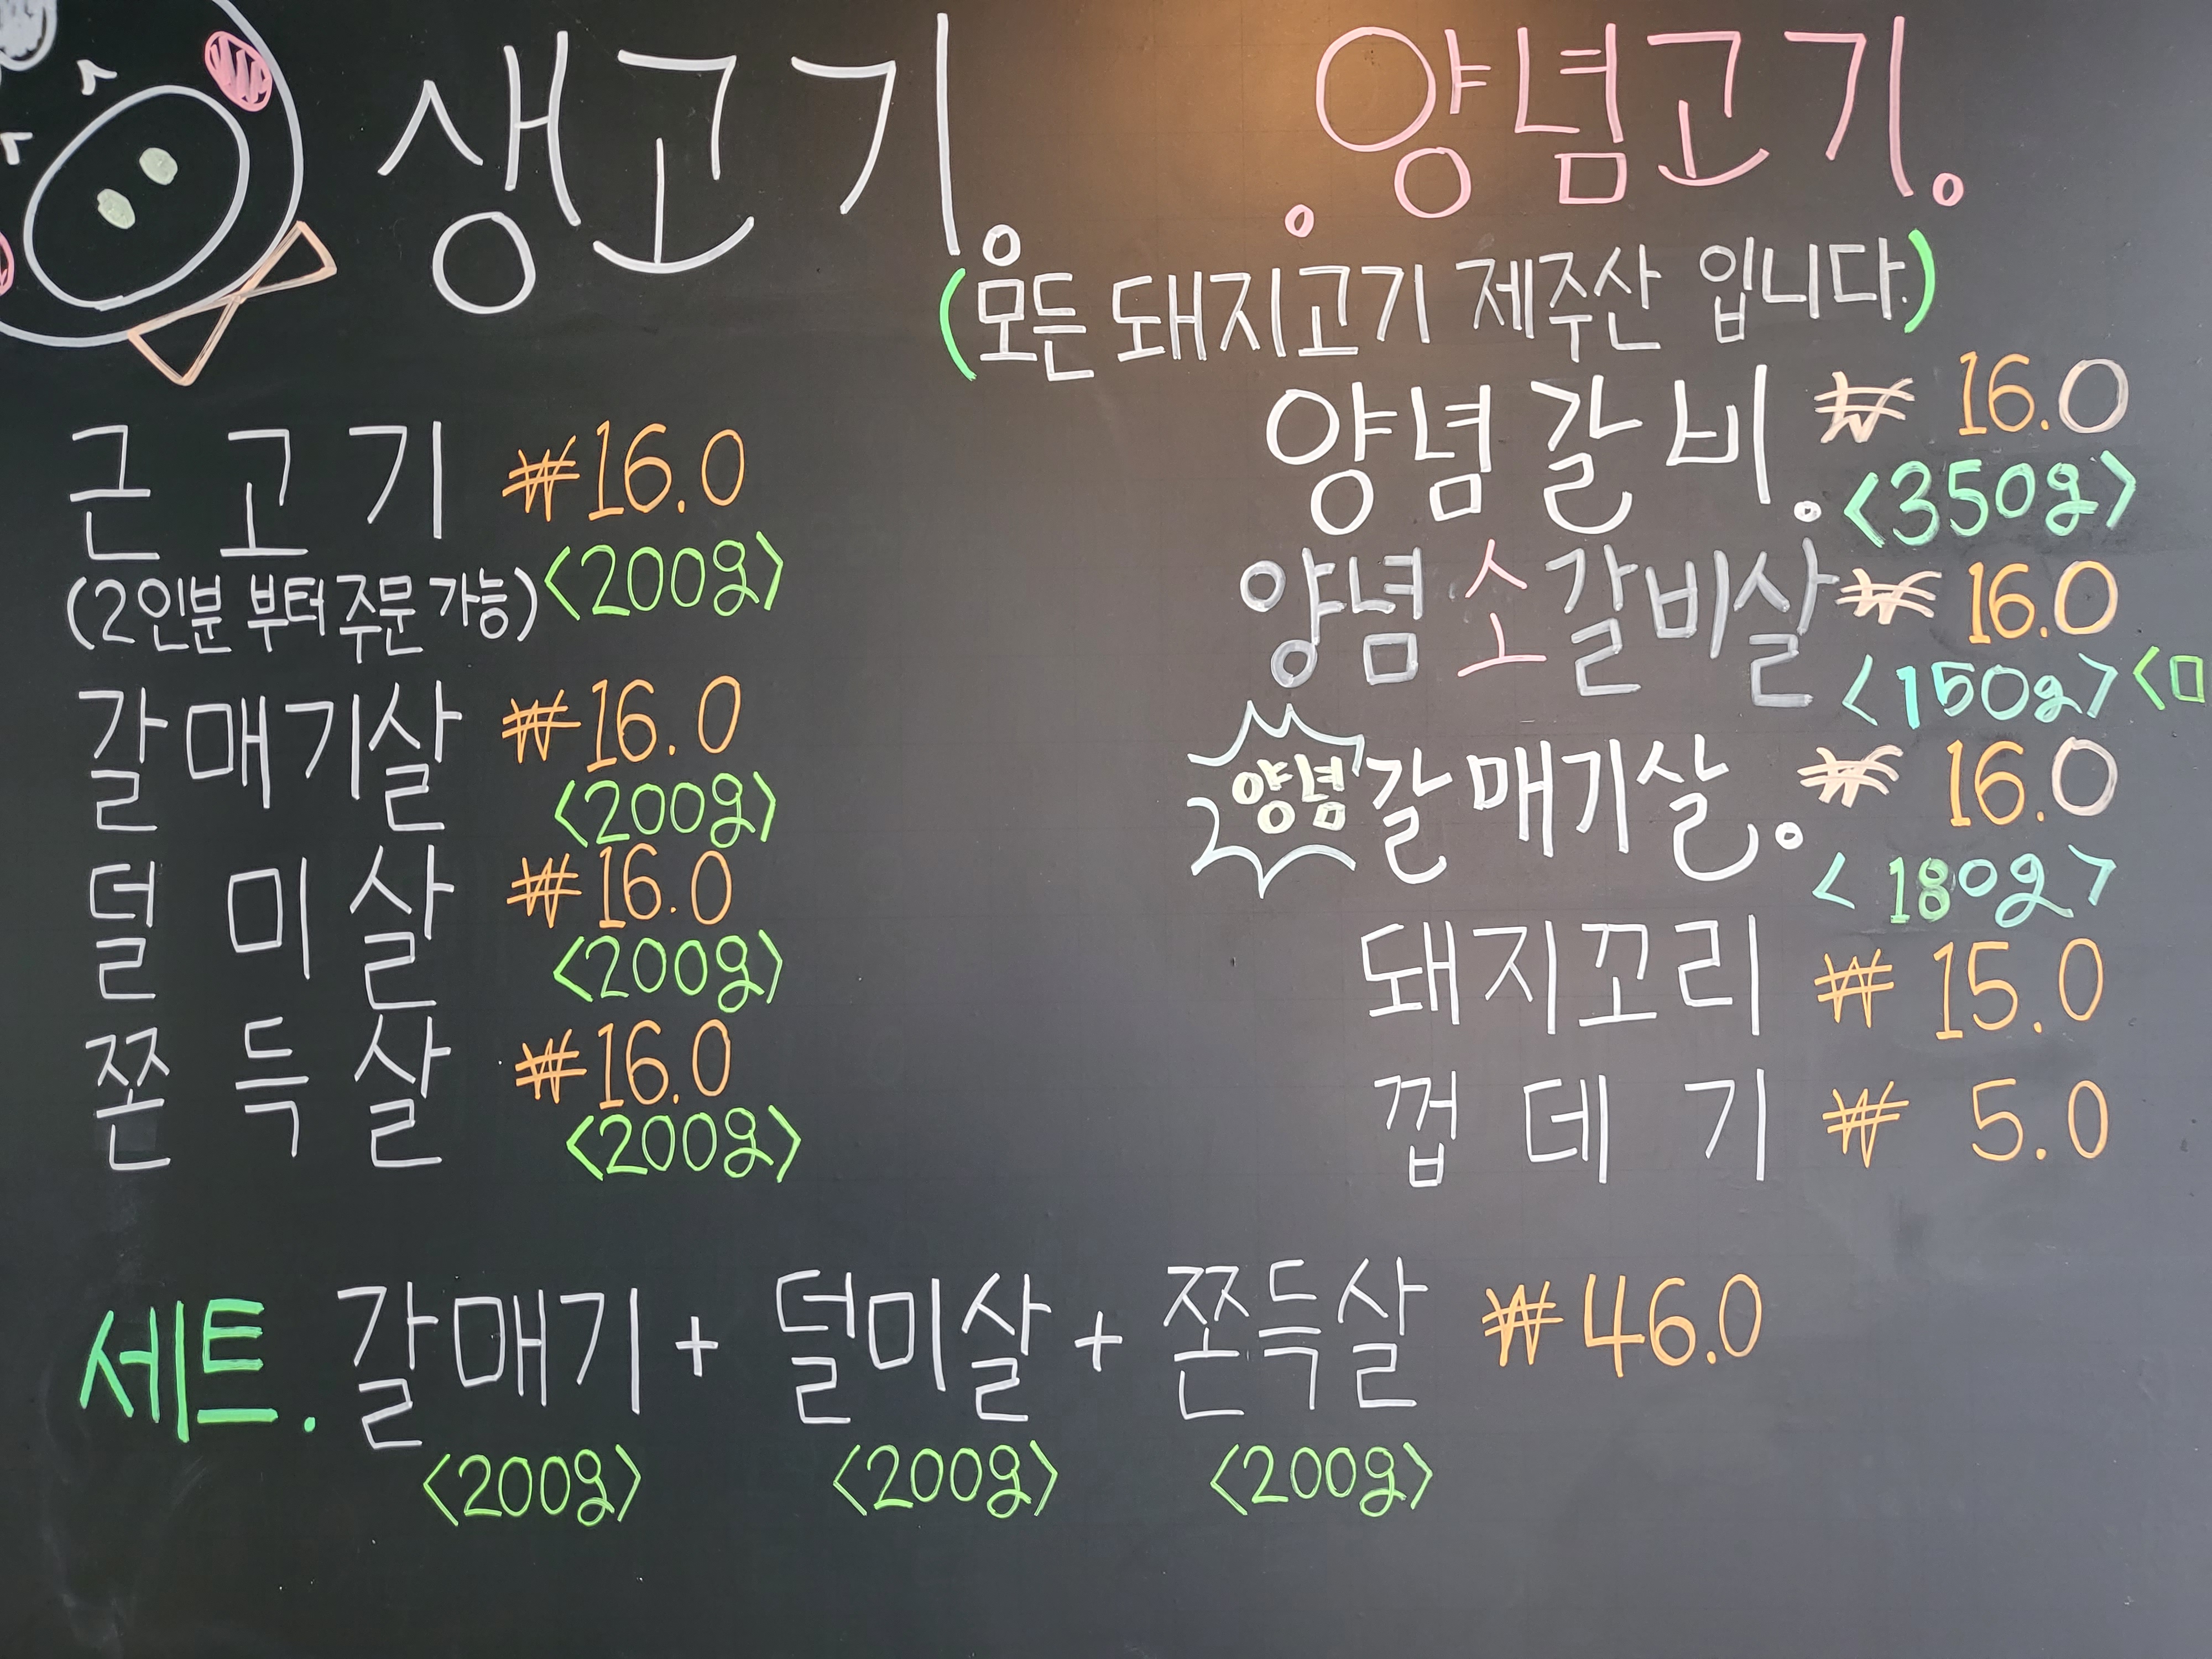 생고기.
근고기 ₩16.0
(2인분 부터 주문 가능) <200g>
갈매기살 ₩16.0
<200g>
덜미살 ₩16.0
<200g>
쫀득살 ₩16.0
<200g>
양념고기.
(모든 돼지고기 제주산 입니다.)
양념갈비. ₩ 16.0
<350g>
양념소갈비살 ₩ 16.0
<150g>
양념 갈매기살. ₩ 16.0
<180g>
돼지꼬리 ₩ 15.0
껍데기 ₩ 5.0
세트. 갈매기 + 덜미살 + 쫀득살 ₩46.0
<200g> <200g> <200g>